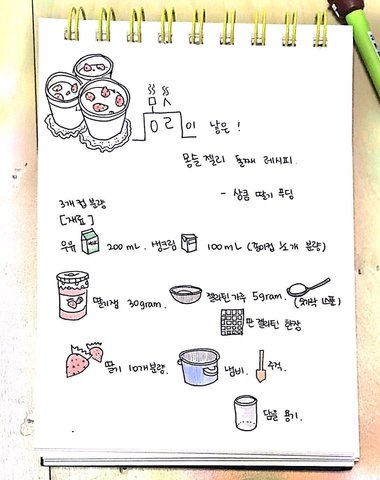 요리이 낳은!
몽들 젤리 둘째 레시피.
- 상큼 딸기 푸딩
3개 컵 분량
[재료]
우유 200mL. 생크림 100mL (종이컵 ½개 분량)
딸기잼 30gram. 젤라틴 가루 5gram.
판 젤라틴 한장
딸기 10개분량. 냄비. 주걱.
담을 용기.